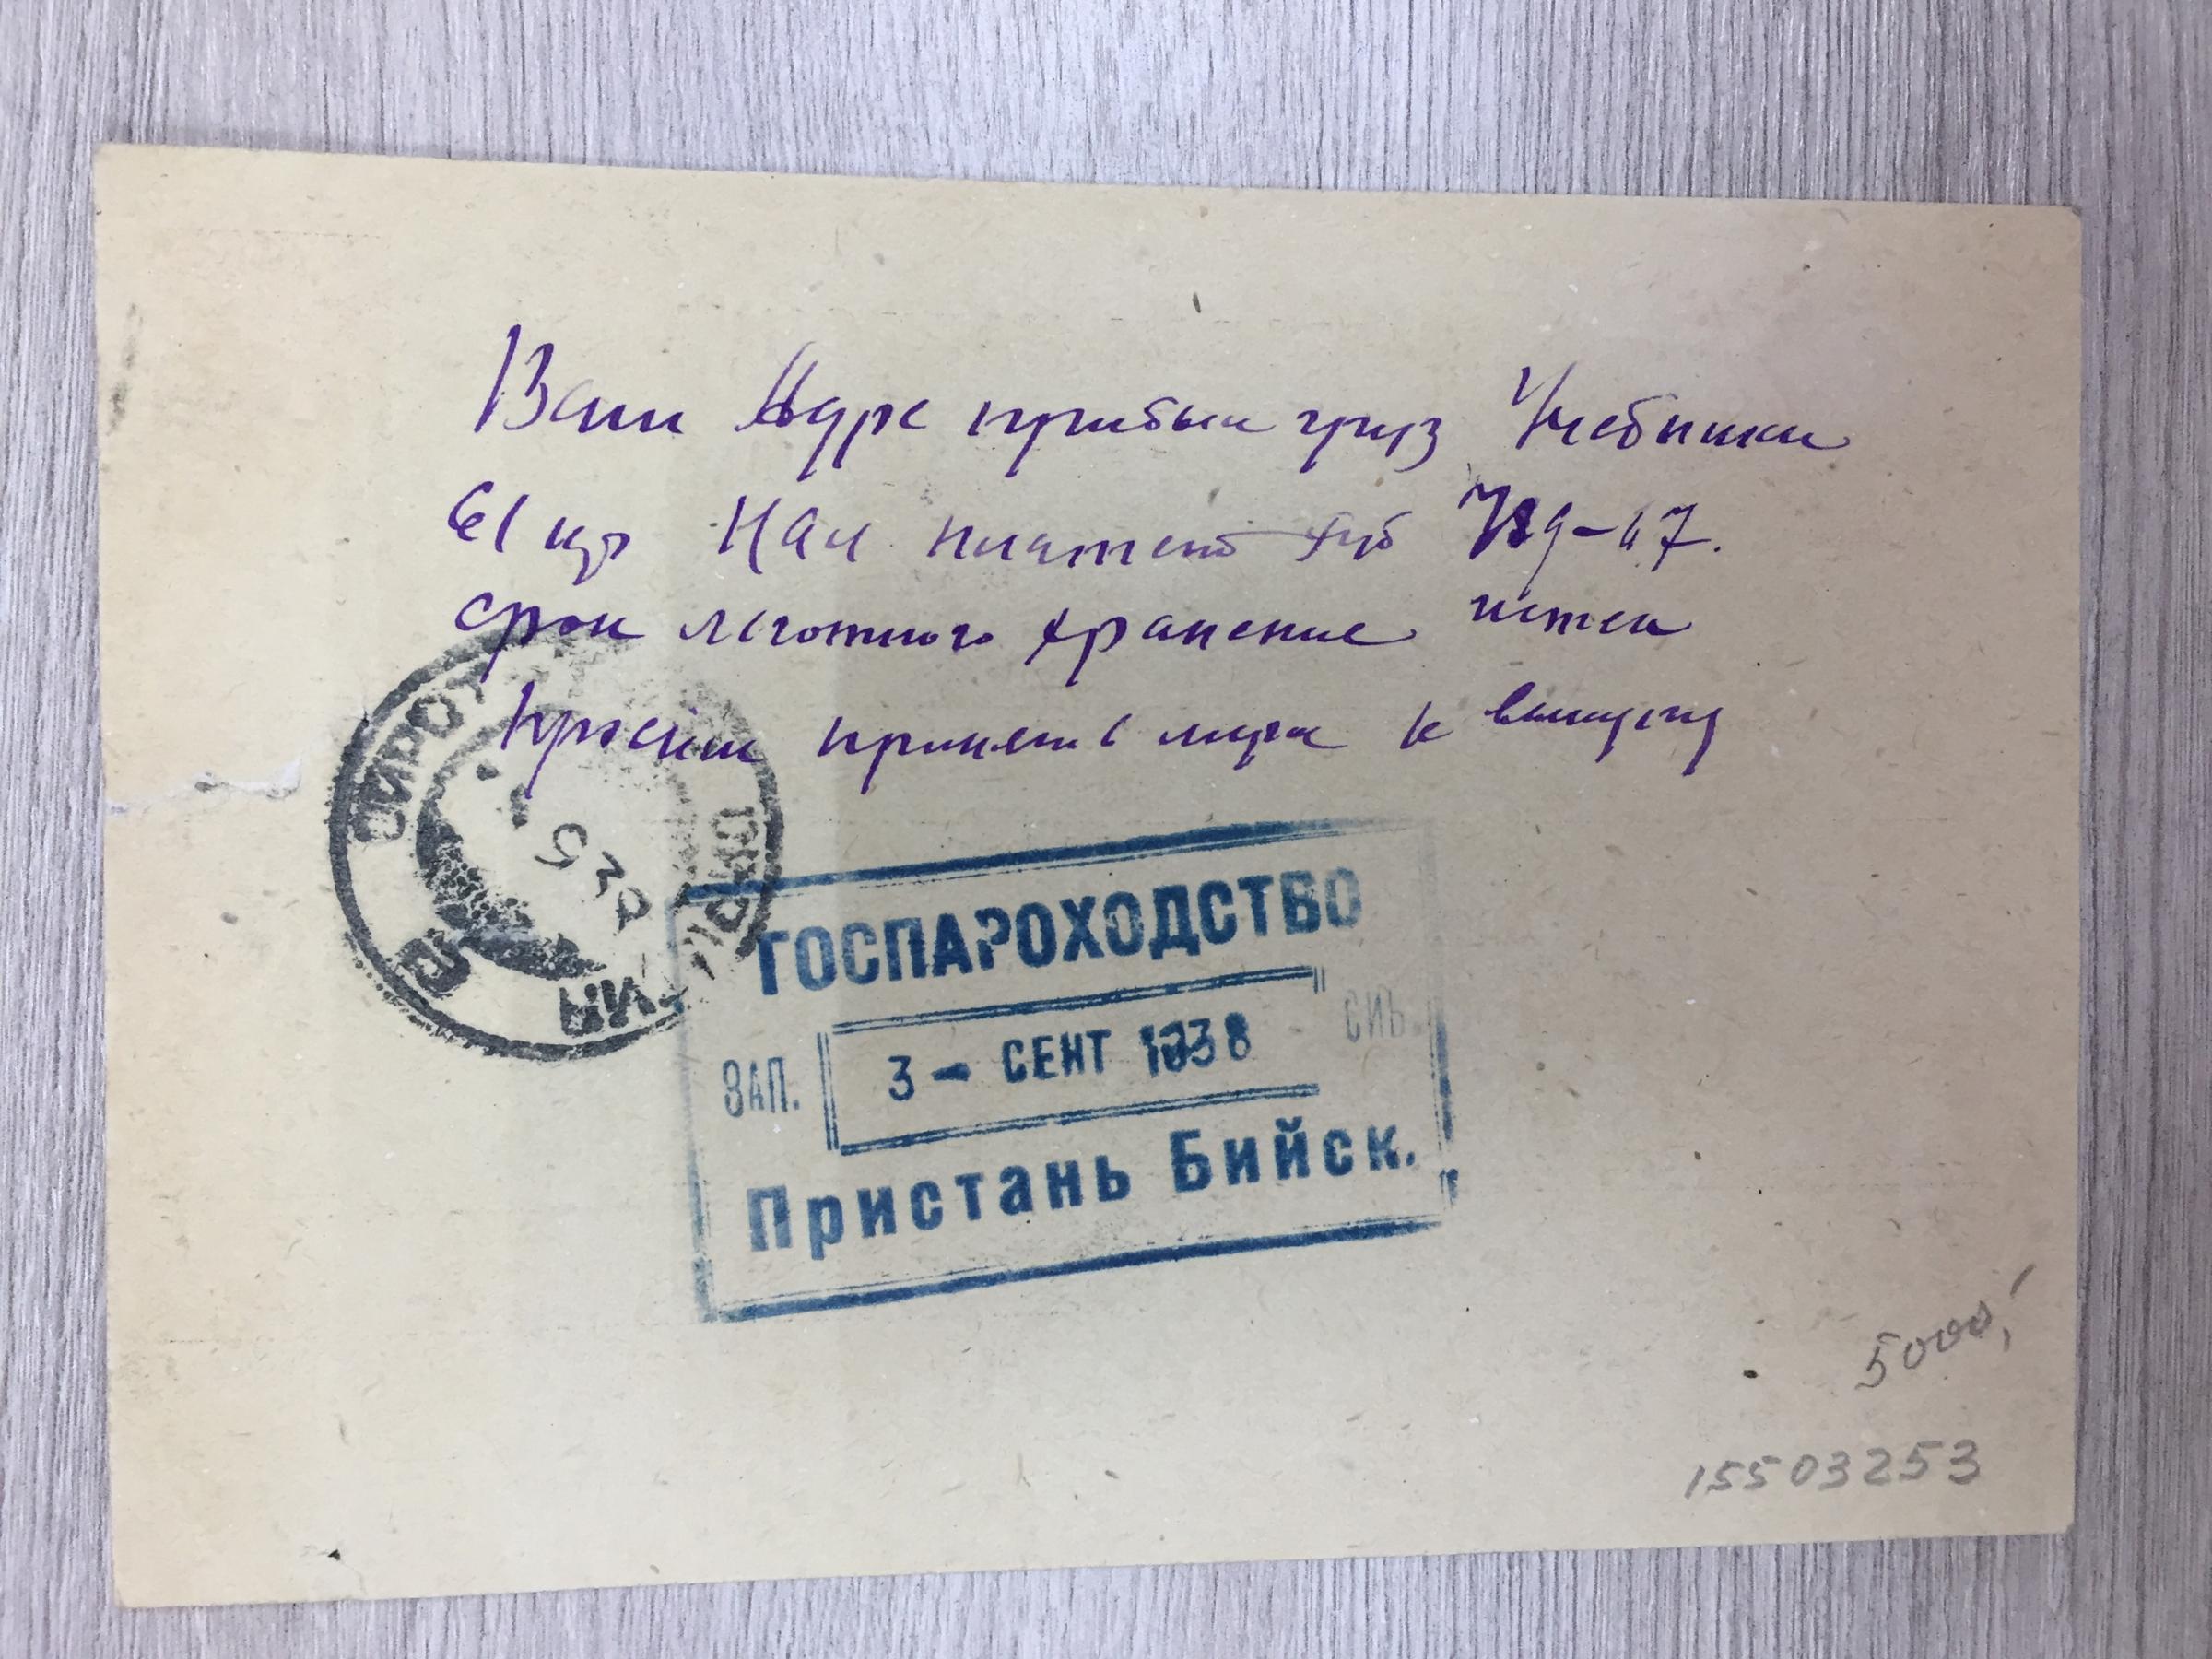 Ваш Адре прибыл груз Учебники
61 кгр Нал платеж руб
срок льготного хранение истек
просим принять меры к выкупу
ГОСПАРОХОДСТВО
ЗАП. 3 - СЕНТ 1938 СИБ.
Пристань Бийск.
5000,
15503253